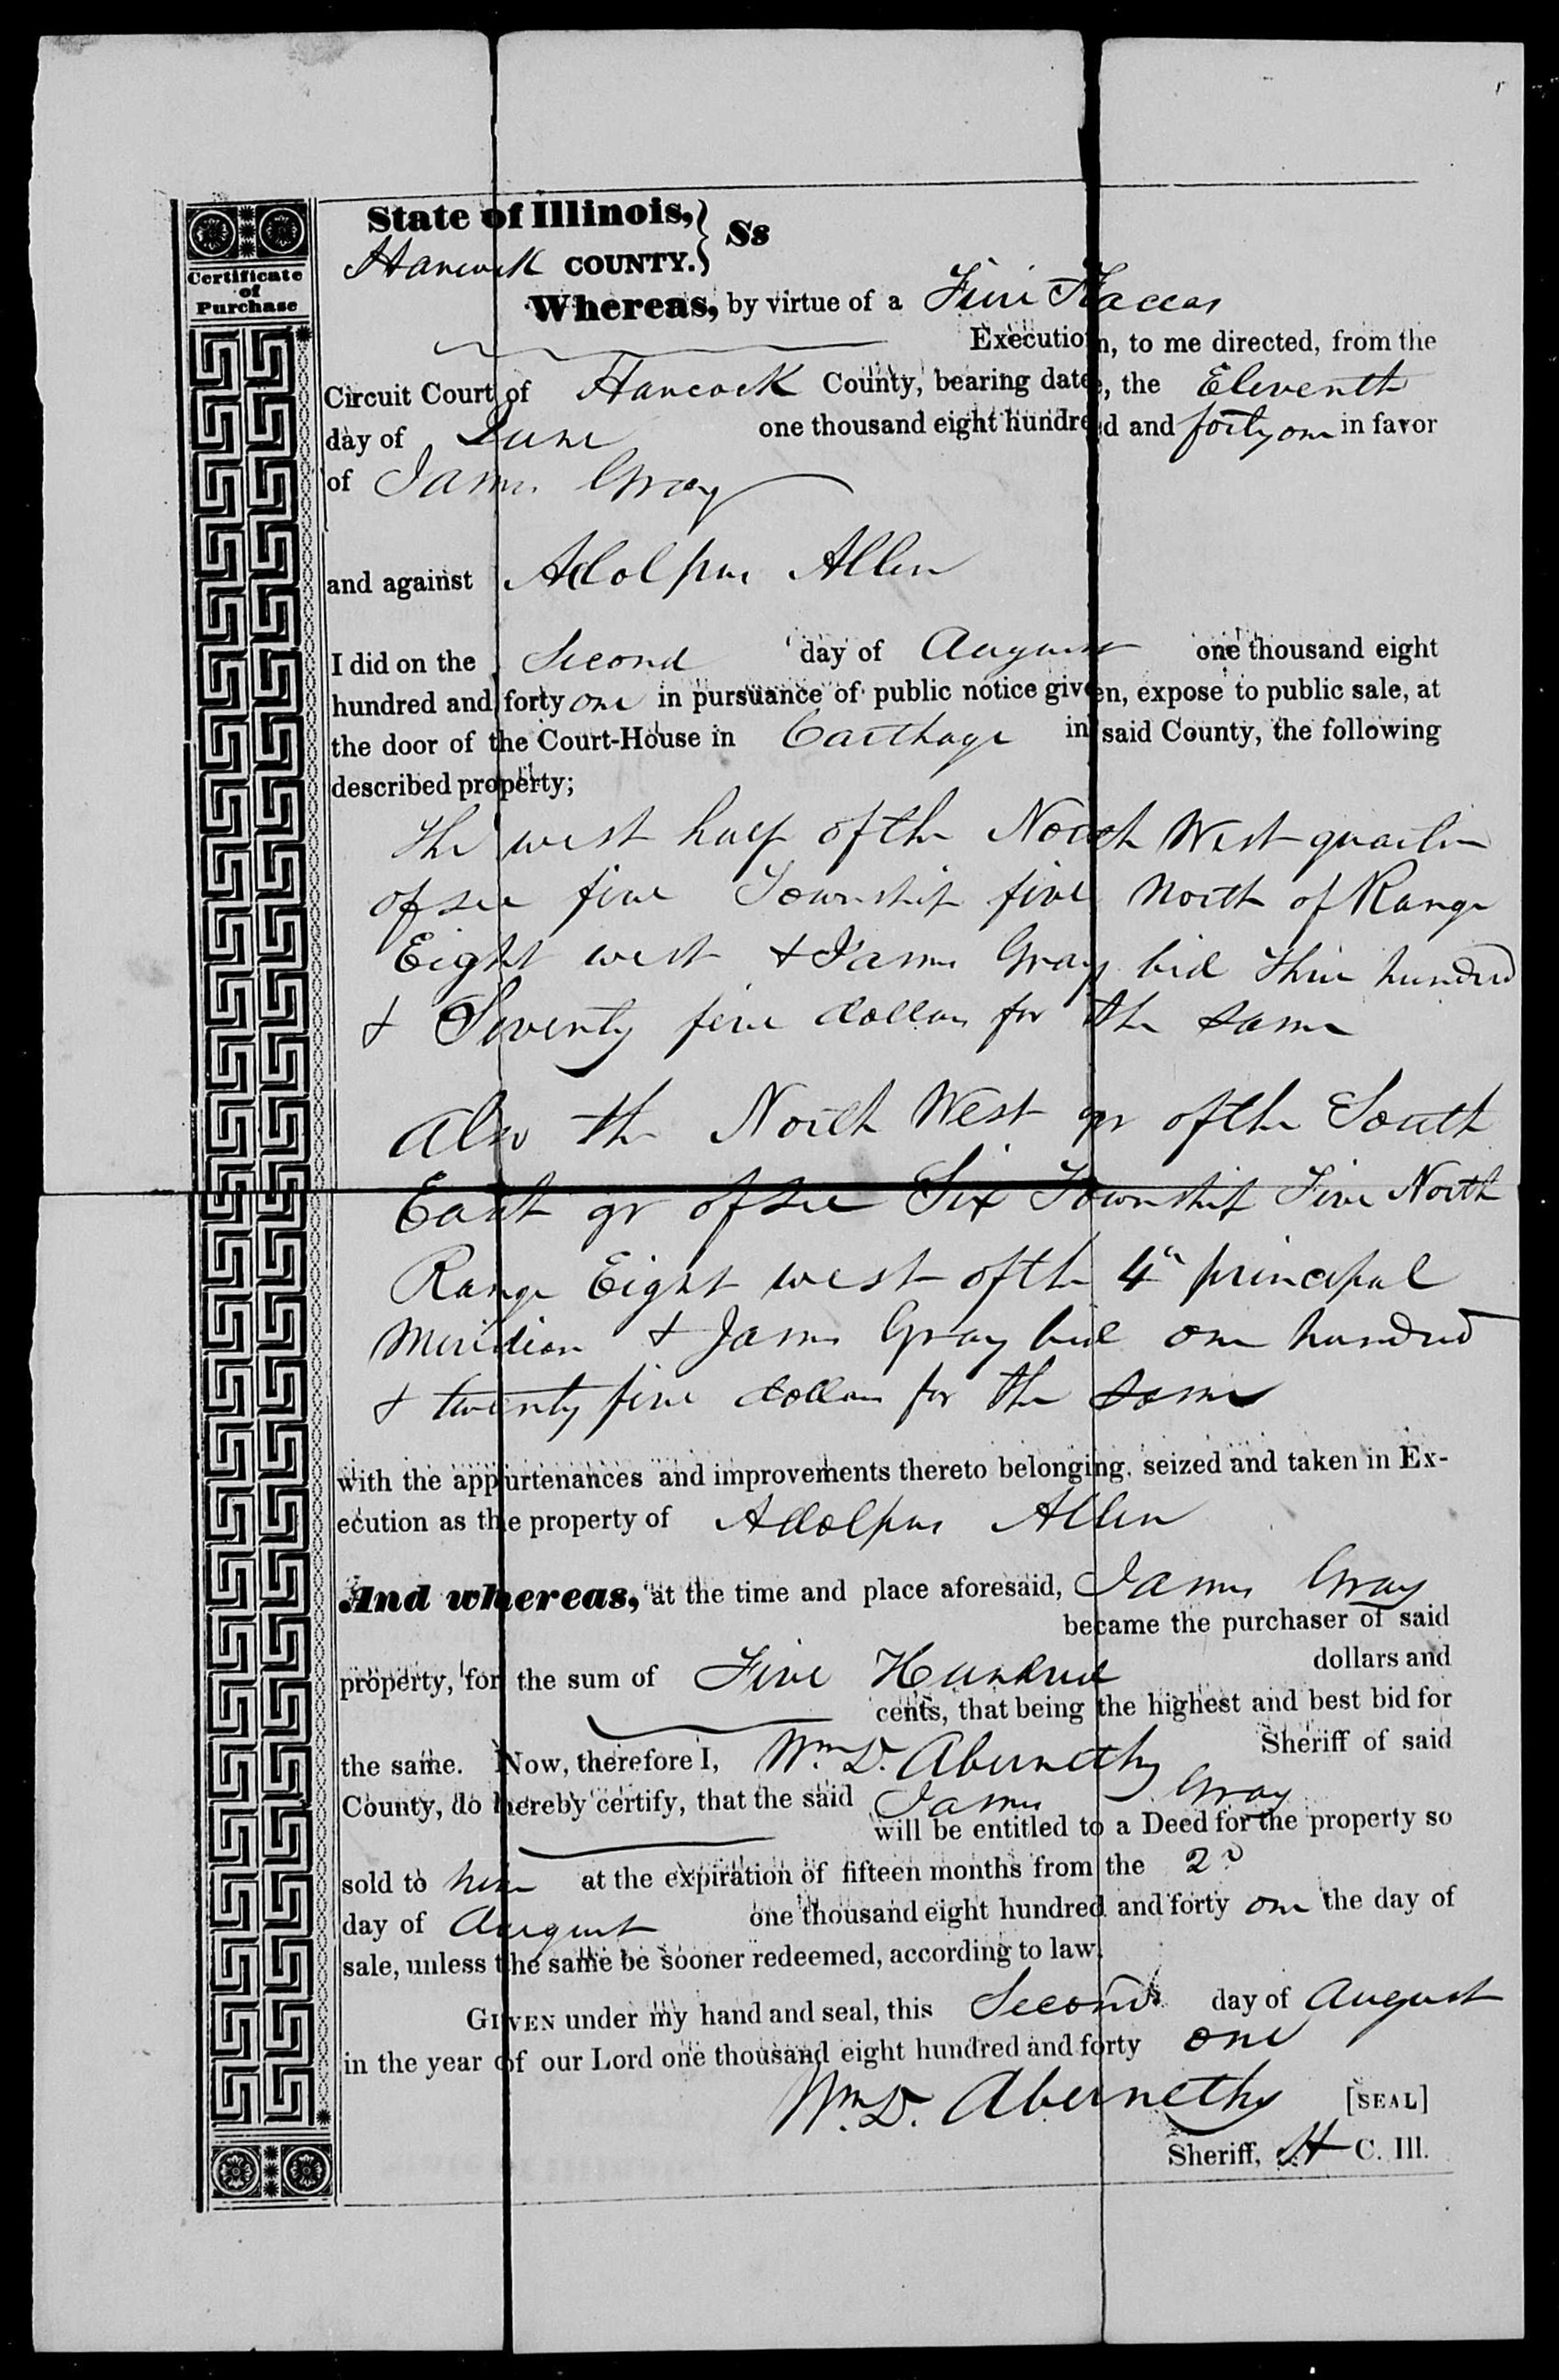 Certificate
of
Purchase
State of Illinois,
Hancock COUNTY. } Ss
Whereas, by virtue of a Firi Faccas
Execution, to me directed, from the
Circuit Court of Hancock County, bearing date, the Eleventh
day of June one thousand eight hundred and forty one in favor
of James Gray
and against Adolphus Allen
I did on the Second day of August one thousand eight
hundred and forty one in pursuance of public notice given, expose to public sale, at
the door of the Court-House in Carthage in said County, the following
described property;
The west half of the North West quarter
of sec five Township five North of Range
Eight west & James Gray bid Three hundred
& Seventy five dollars for the same
Also the North West qr of the South
East qr of sec Six Township Five North
Range Eight west of the 4th principal
Meridian & James Gray bid one hundred
& twenty five dollars for the same
with the appurtenances and improvements thereto belonging, seized and taken in Ex-
ecution as the property of Adolphus Allen
And whereas, at the time and place aforesaid, James Gray
became the purchaser of said
property, for the sum of Five Hundred dollars and
cents, that being the highest and best bid for
the same. Now, therefore I, Wm. D. Abernethy Sheriff of said
County, do hereby certify, that the said James Gray
will be entitled to a Deed for the property so
sold to him at the expiration of fifteen months from the 2d
day of August one thousand eight hundred and forty one the day of
sale, unless the same be sooner redeemed, according to law.
GIVEN under my hand and seal, this Second day of August
in the year of our Lord one thousand eight hundred and forty one
Wm. D. Abernethy [SEAL]
Sheriff, H C. Ill.